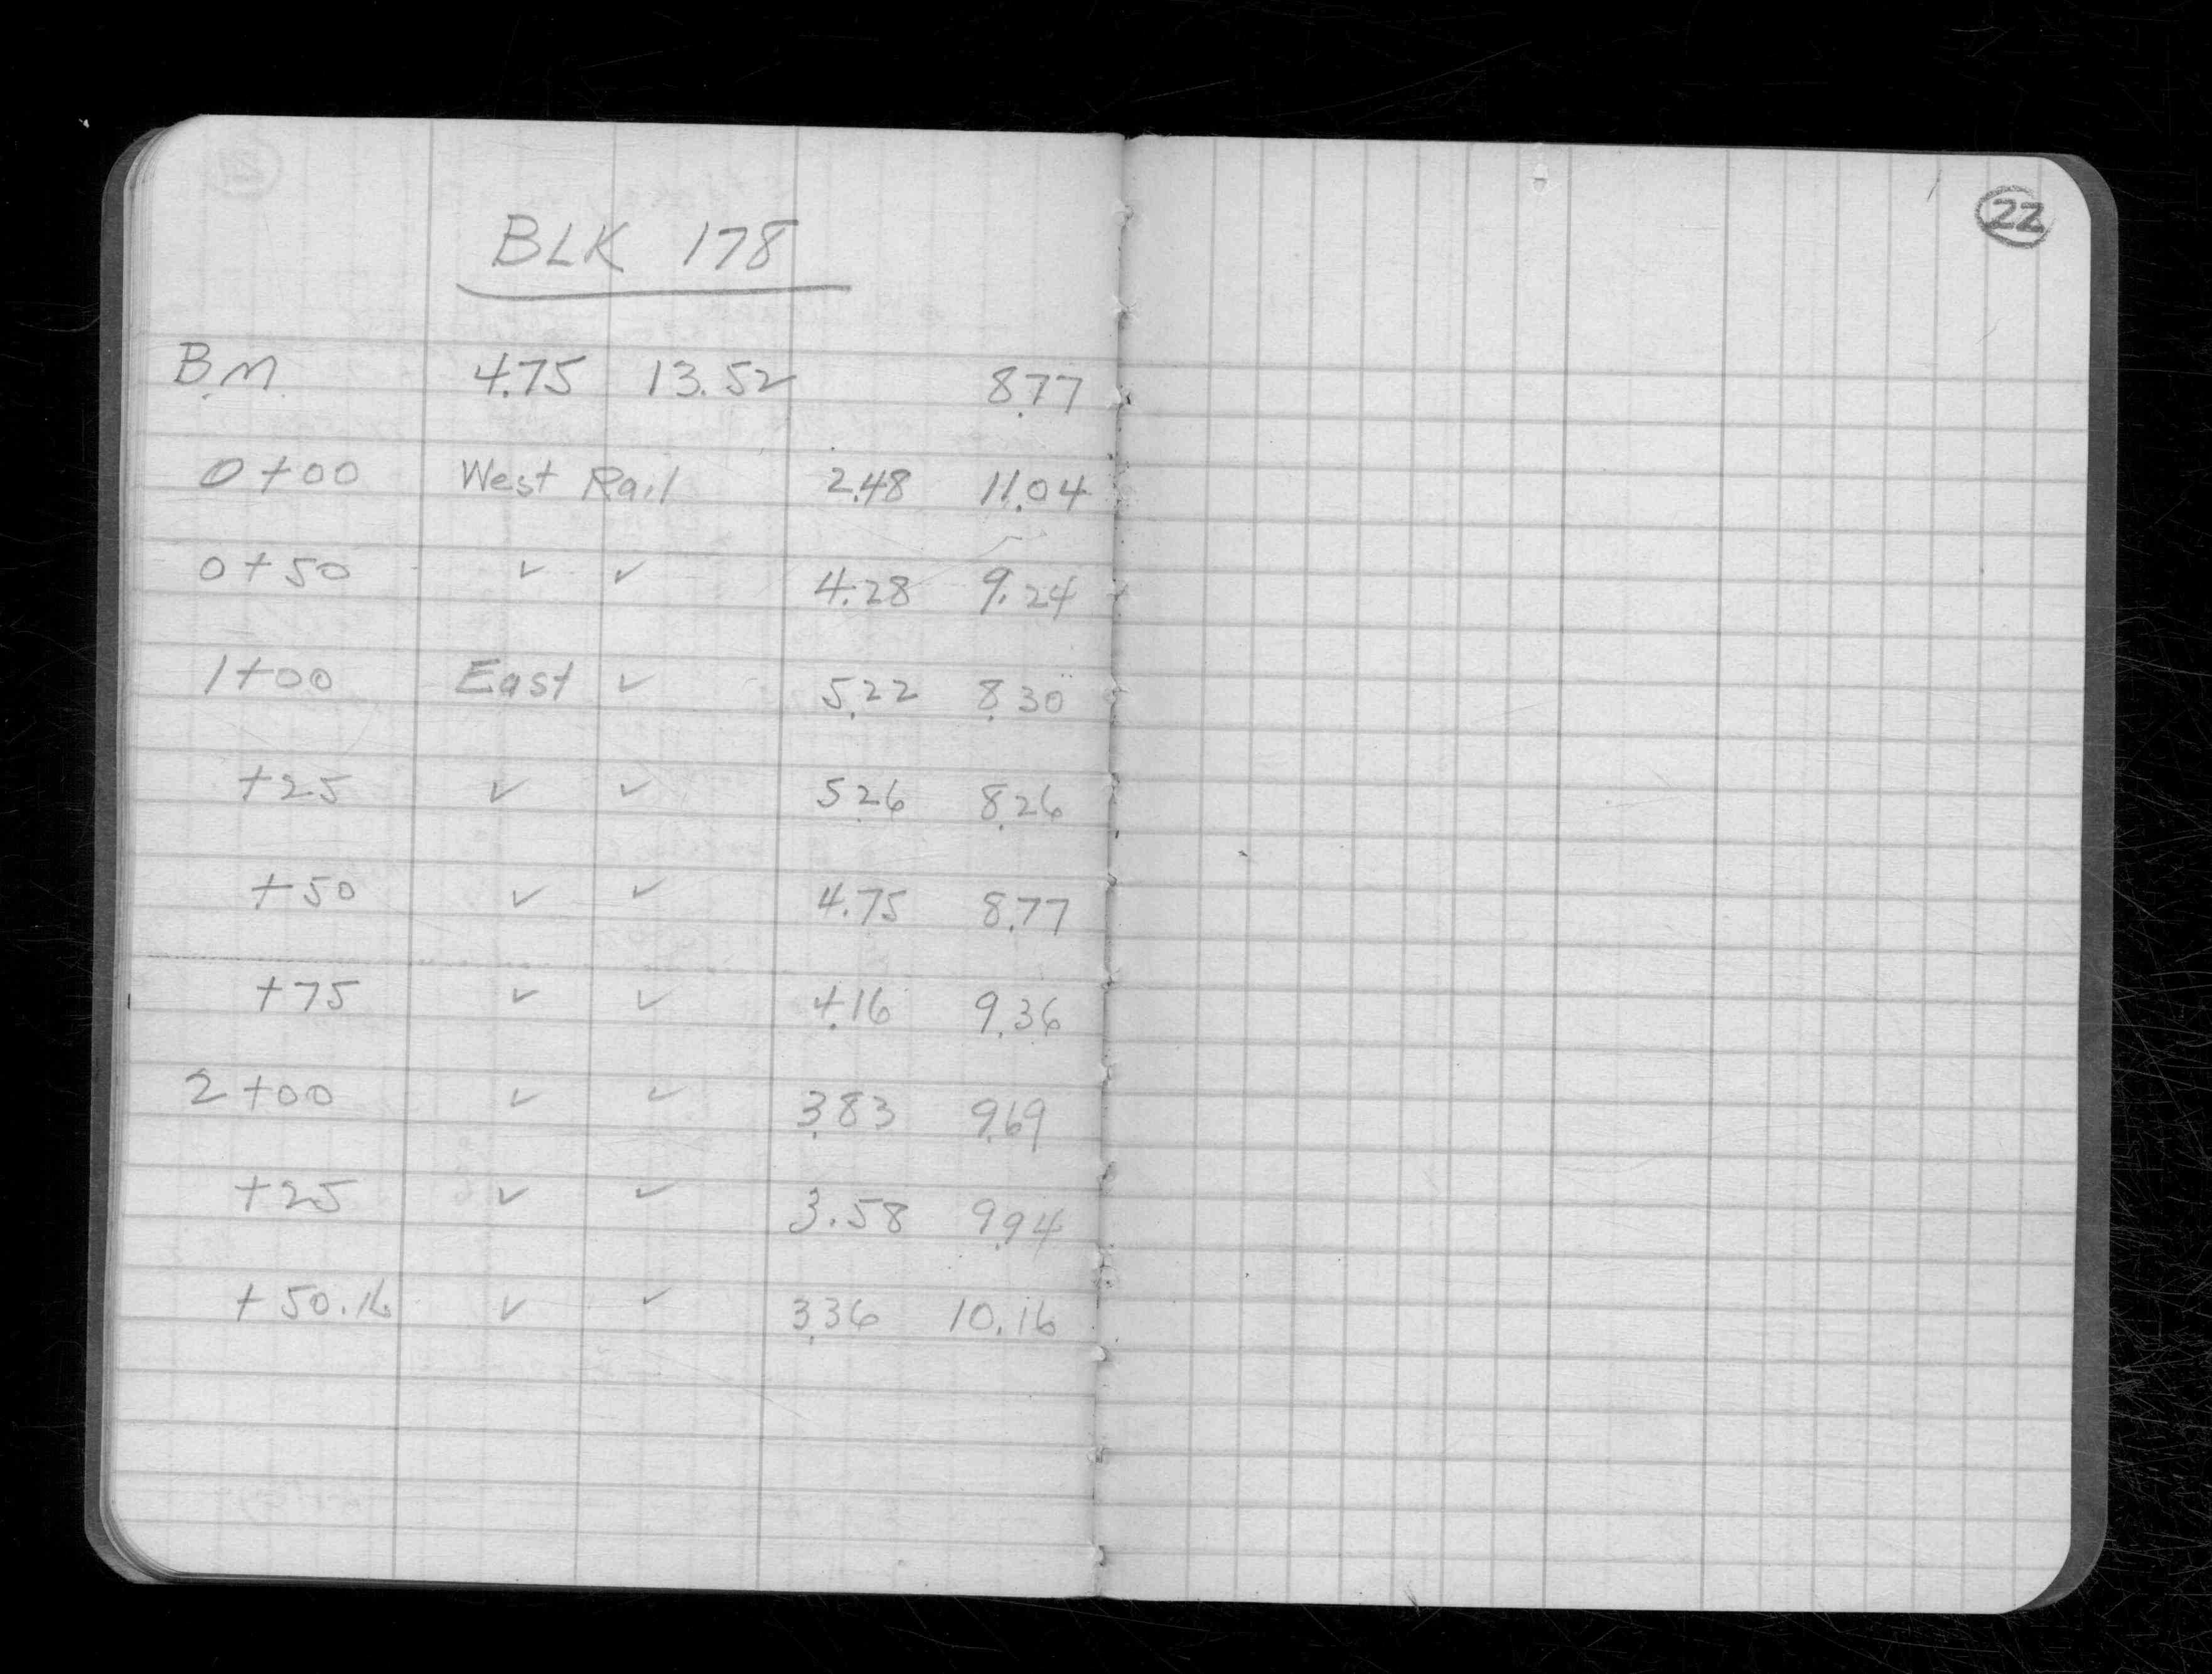 BLK 178
B.M. 4.75 13.52 8.77
0+00 West Rail 2.48 11.04
0+50 ✓ ✓ 4.28 9.24
1+00 East ✓ 5.22 8.30
+25 ✓ ✓ 5.26 8.26
+50 ✓ ✓ 4.75 8.77
+75 ✓ ✓ 4.16 9.36
2+00 ✓ ✓ 3.83 9.69
+25 ✓ ✓ 3.58 9.94
+50.16 ✓ ✓ 3.36 10.16
22